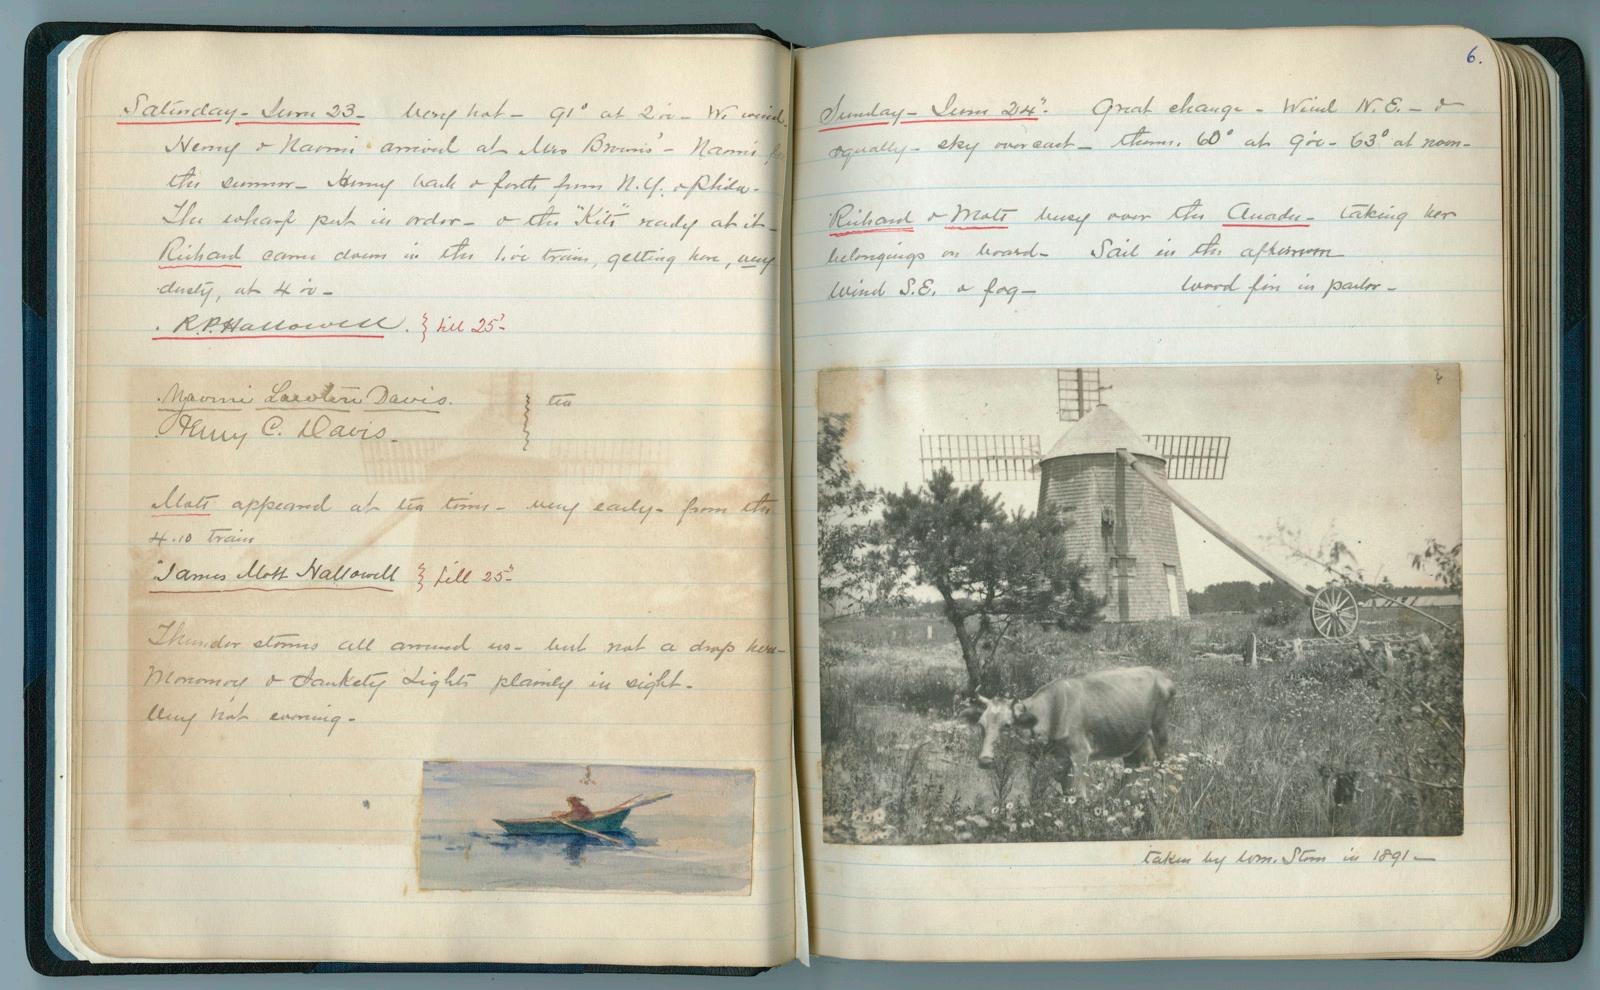 Saturday - June 23 - Very hot - 91° at 2 o'c - W. wind.
Henny & Naomi arrived at Mrs Browns' - Naomi for
the summer - Henny back & forth from N.Y. & Phila -
The wharf put in order - & the "Kits" ready at it -
Richard came down in the 1 o'c train, getting here, very
dusty, at 4 o'c -
R.P. Hallowell. } till 25th
Naomi Lawton Davis. } tea
Henry C. Davis.
Mott appeared at tea time - very early - from the
4.10 train
James Mott Hallowell } till 25th
Thunder storms all around us - but not a drop here -
Monomoy & Sankety Lights plainly in sight -
Very hot evening -
6.
Sunday - June 24th. Great change - Wind N.E. - &
squally - sky overcast - therm. 60° at 9 o'c - 63° at noon -
Richard & Mott busy over the - taking her
belongings on board - Sail in the afternoon
Wind S.E. & fog - Wood fire in parlor -
taken by Wm. in 1891 -